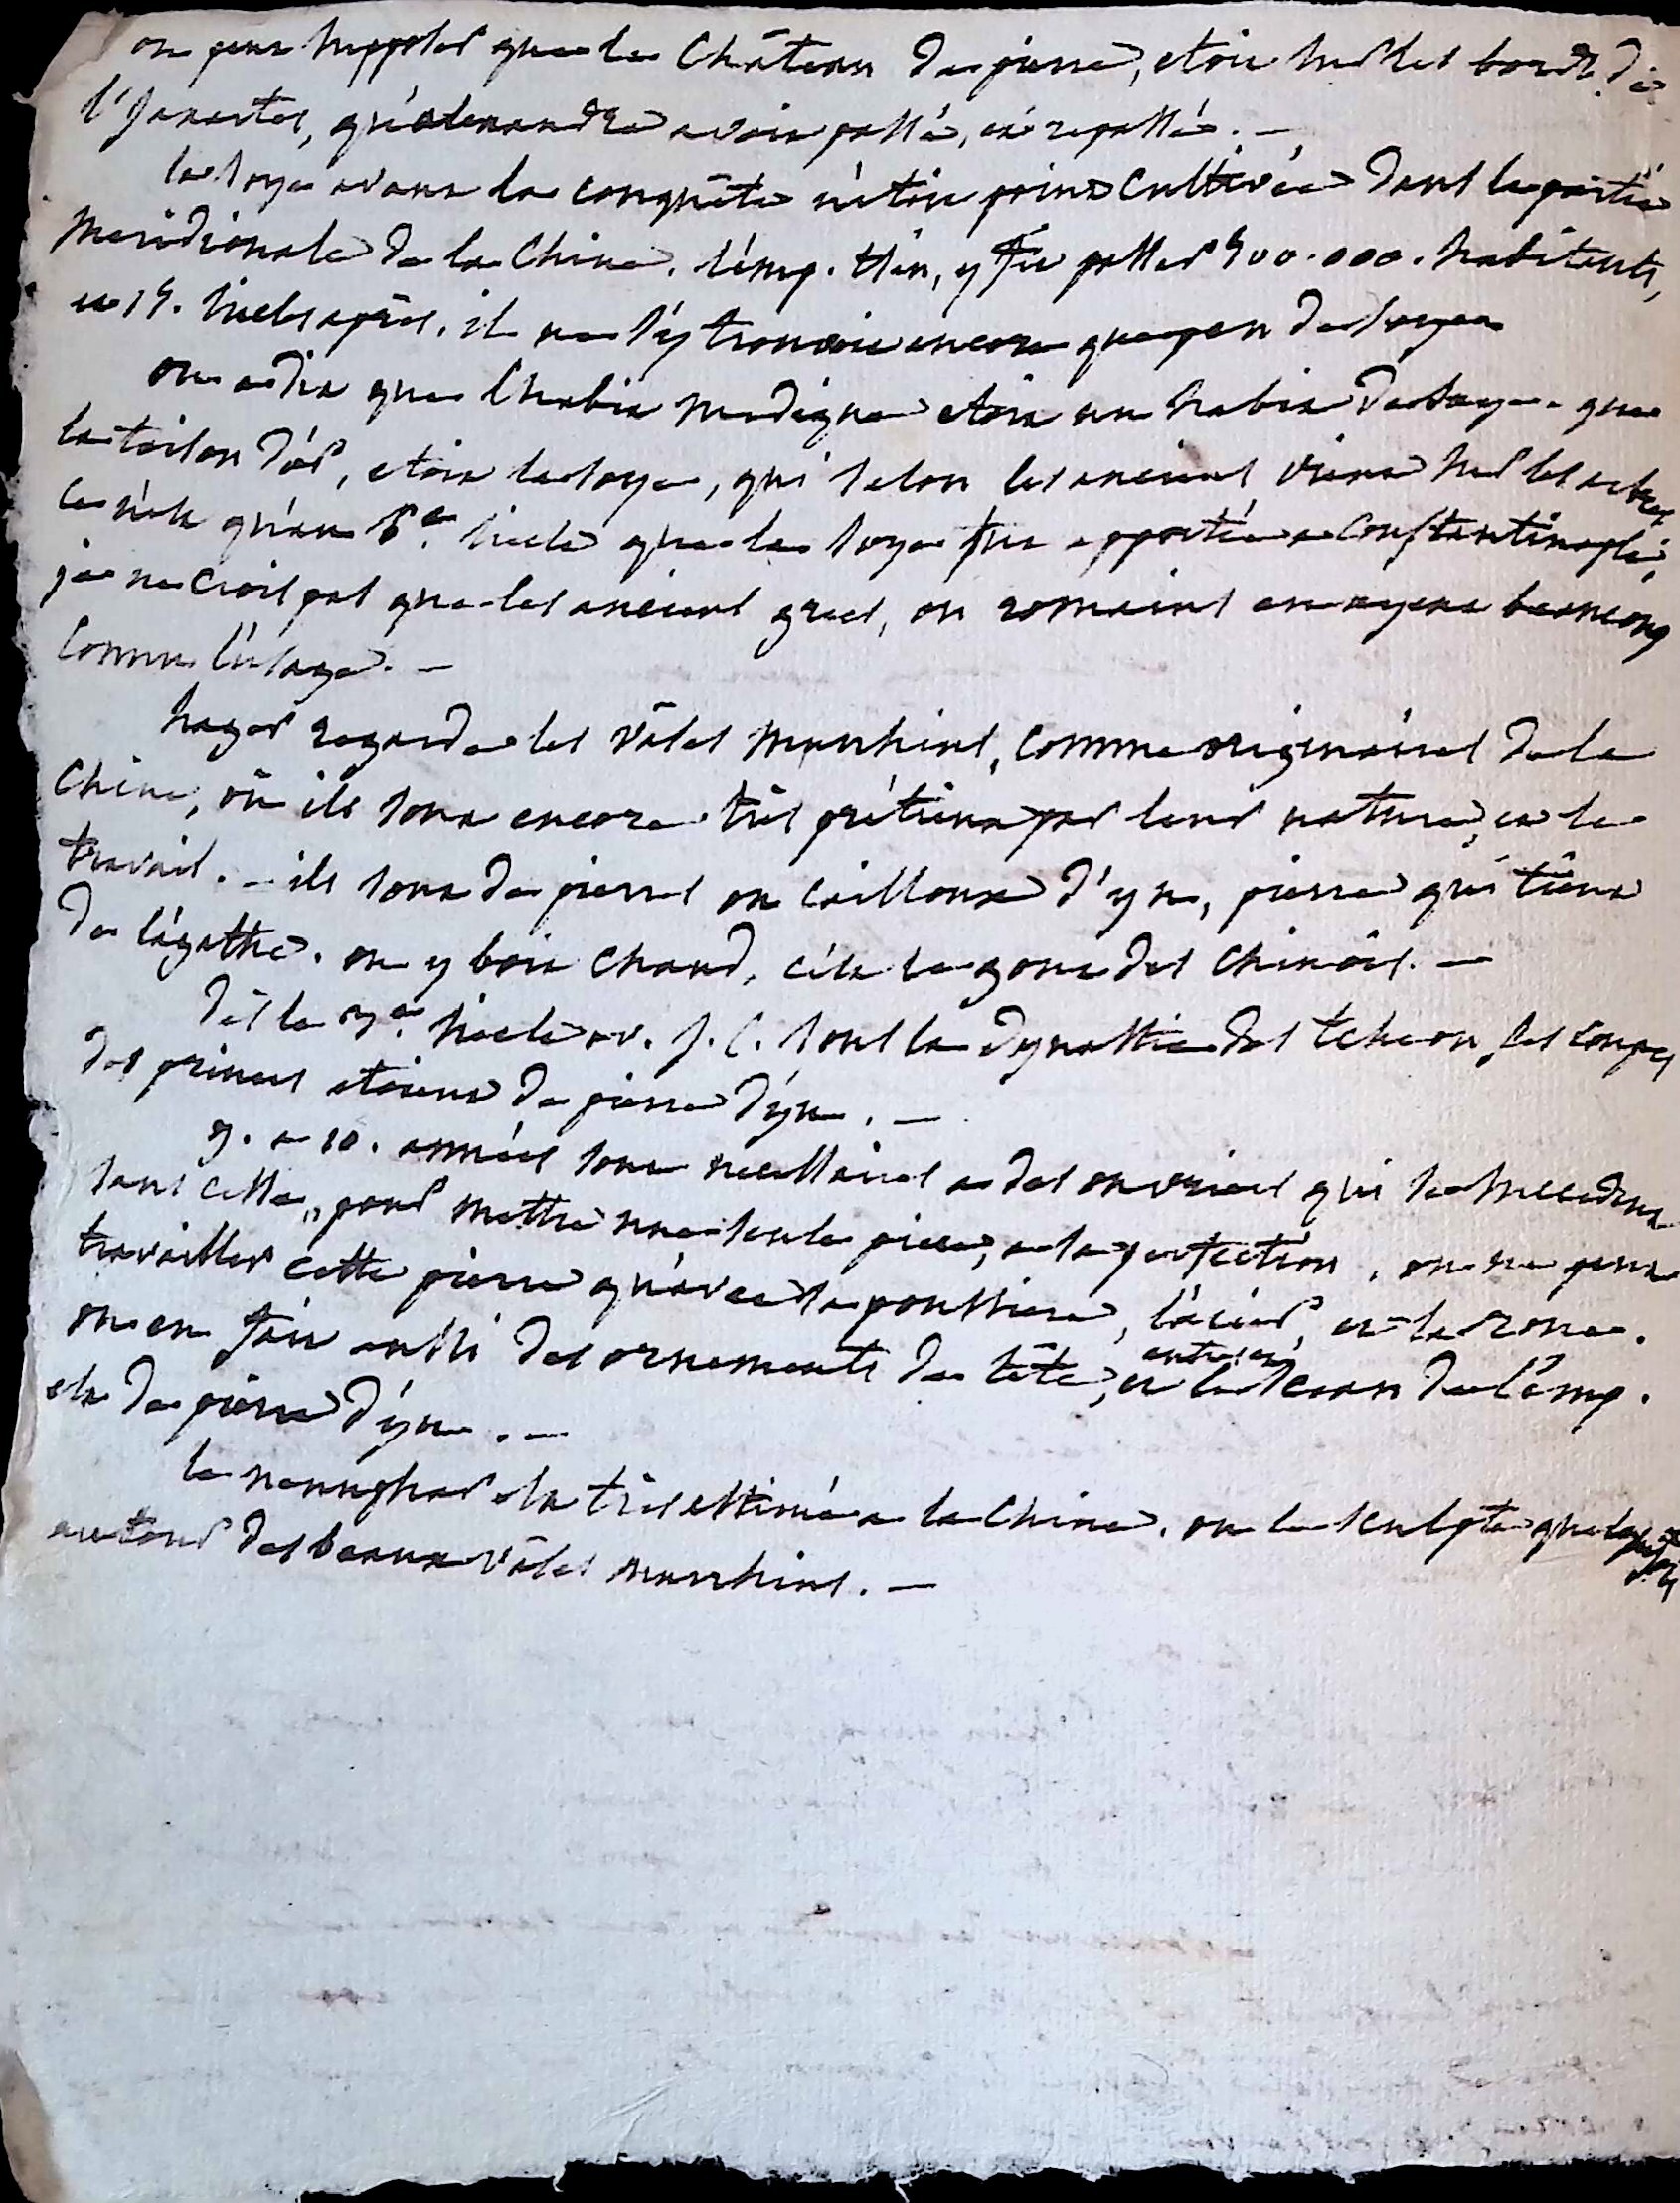 on peut supposer que le Château de pierre, etoit sur les bords de
l'Jaxartes, qu'alexandre avoit passé, et repassé. —
la soye avant la conquête n'etoit point cultivée dans la partie
meridionale de la Chine. l'emp. tsin, y fit passer 500.000. habitants,
et 15. siecles après, il ne s'y trouvoit encore que peu de soye
on a dit que l'habit medique etoit un habit de soye - que
la toison d'or, etoit la soye, qui selon les anciens, vient sur les arbres
ce n'est qu'au 6e. siecle que la soye fut apportée a Constantinople,
je ne crois pas que les anciens grecs, ou romains en ayent beaucoup
connu l'usage. —
hager regarde les vâses murrhins, comme originaires de la
Chine, où ils sont encore très prétieux par leur nature, et le
travail. - ils sont de pierres ou cailloux d'yu, pierre qui tient
de l'agathe. on y boit chaud, c'est le gout des Chinois. —
dès le 7e. siecle av. J. C. sous la dynastie des tcheou, les coupes
des princes etoient de pierre d'yu. —
9. a 10. années sont necessaires a des ouvriers qui se succedent
sans cesse, pour mettre une seule piece, a la perfection, on ne peut
travailler cette pierre qu'avec la poussiere, l'acier, et la roue.
on en fait aussi des ornements de tête, et le sceau de l'emp.
est de pierre d'yu. —
le nenuphar est très estimé a la Chine. on le sculpte quelquefois
autour des beaux vâses murrhins. —